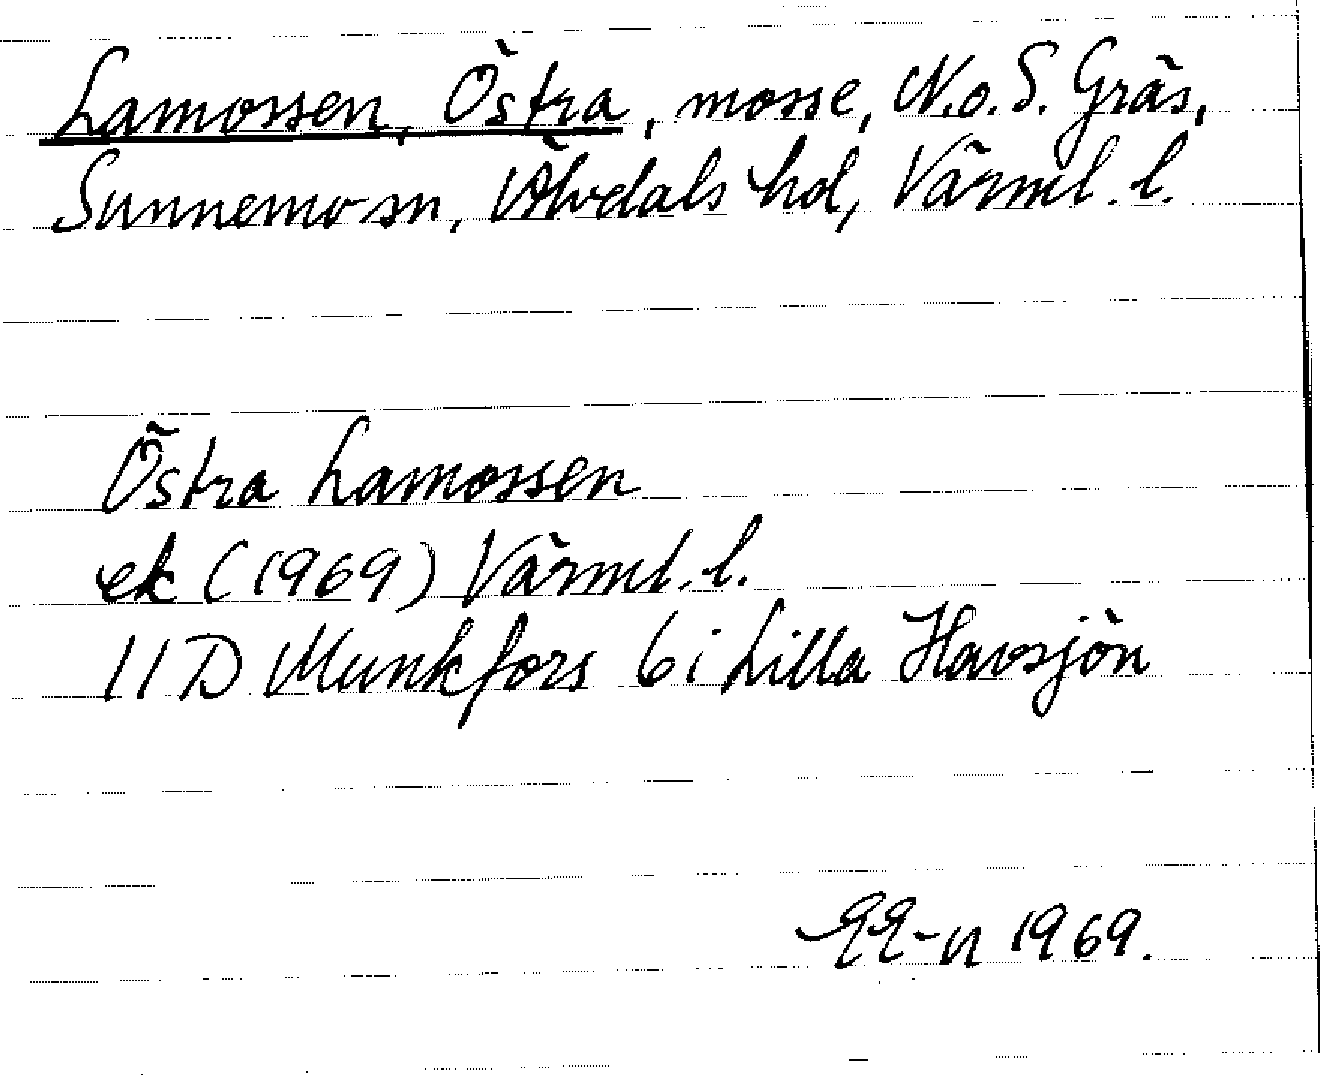 Lamossen, Östra, mosse, N.o.S. Gräs,
Sunnemo sn, Älvdals hd, Värml. l.
Östra Lamossen
ek (1969) Värml. l.
11 D Munkfors 6 i Lilla Havsjön
1969.